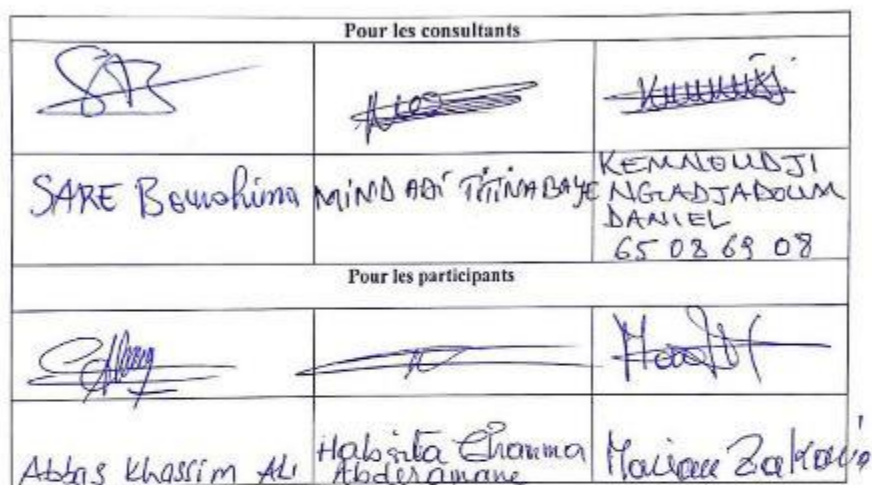 Pour les consultants
SARE Bourahima
MINDADI TITINABAYE
KEMNOUDJI
NGUADJADOUM
DANIEL
65 08 69 08
Pour les participants
Abbas Khassim Ali
Habsita Channa
Abderamane
Mariam Zakaria